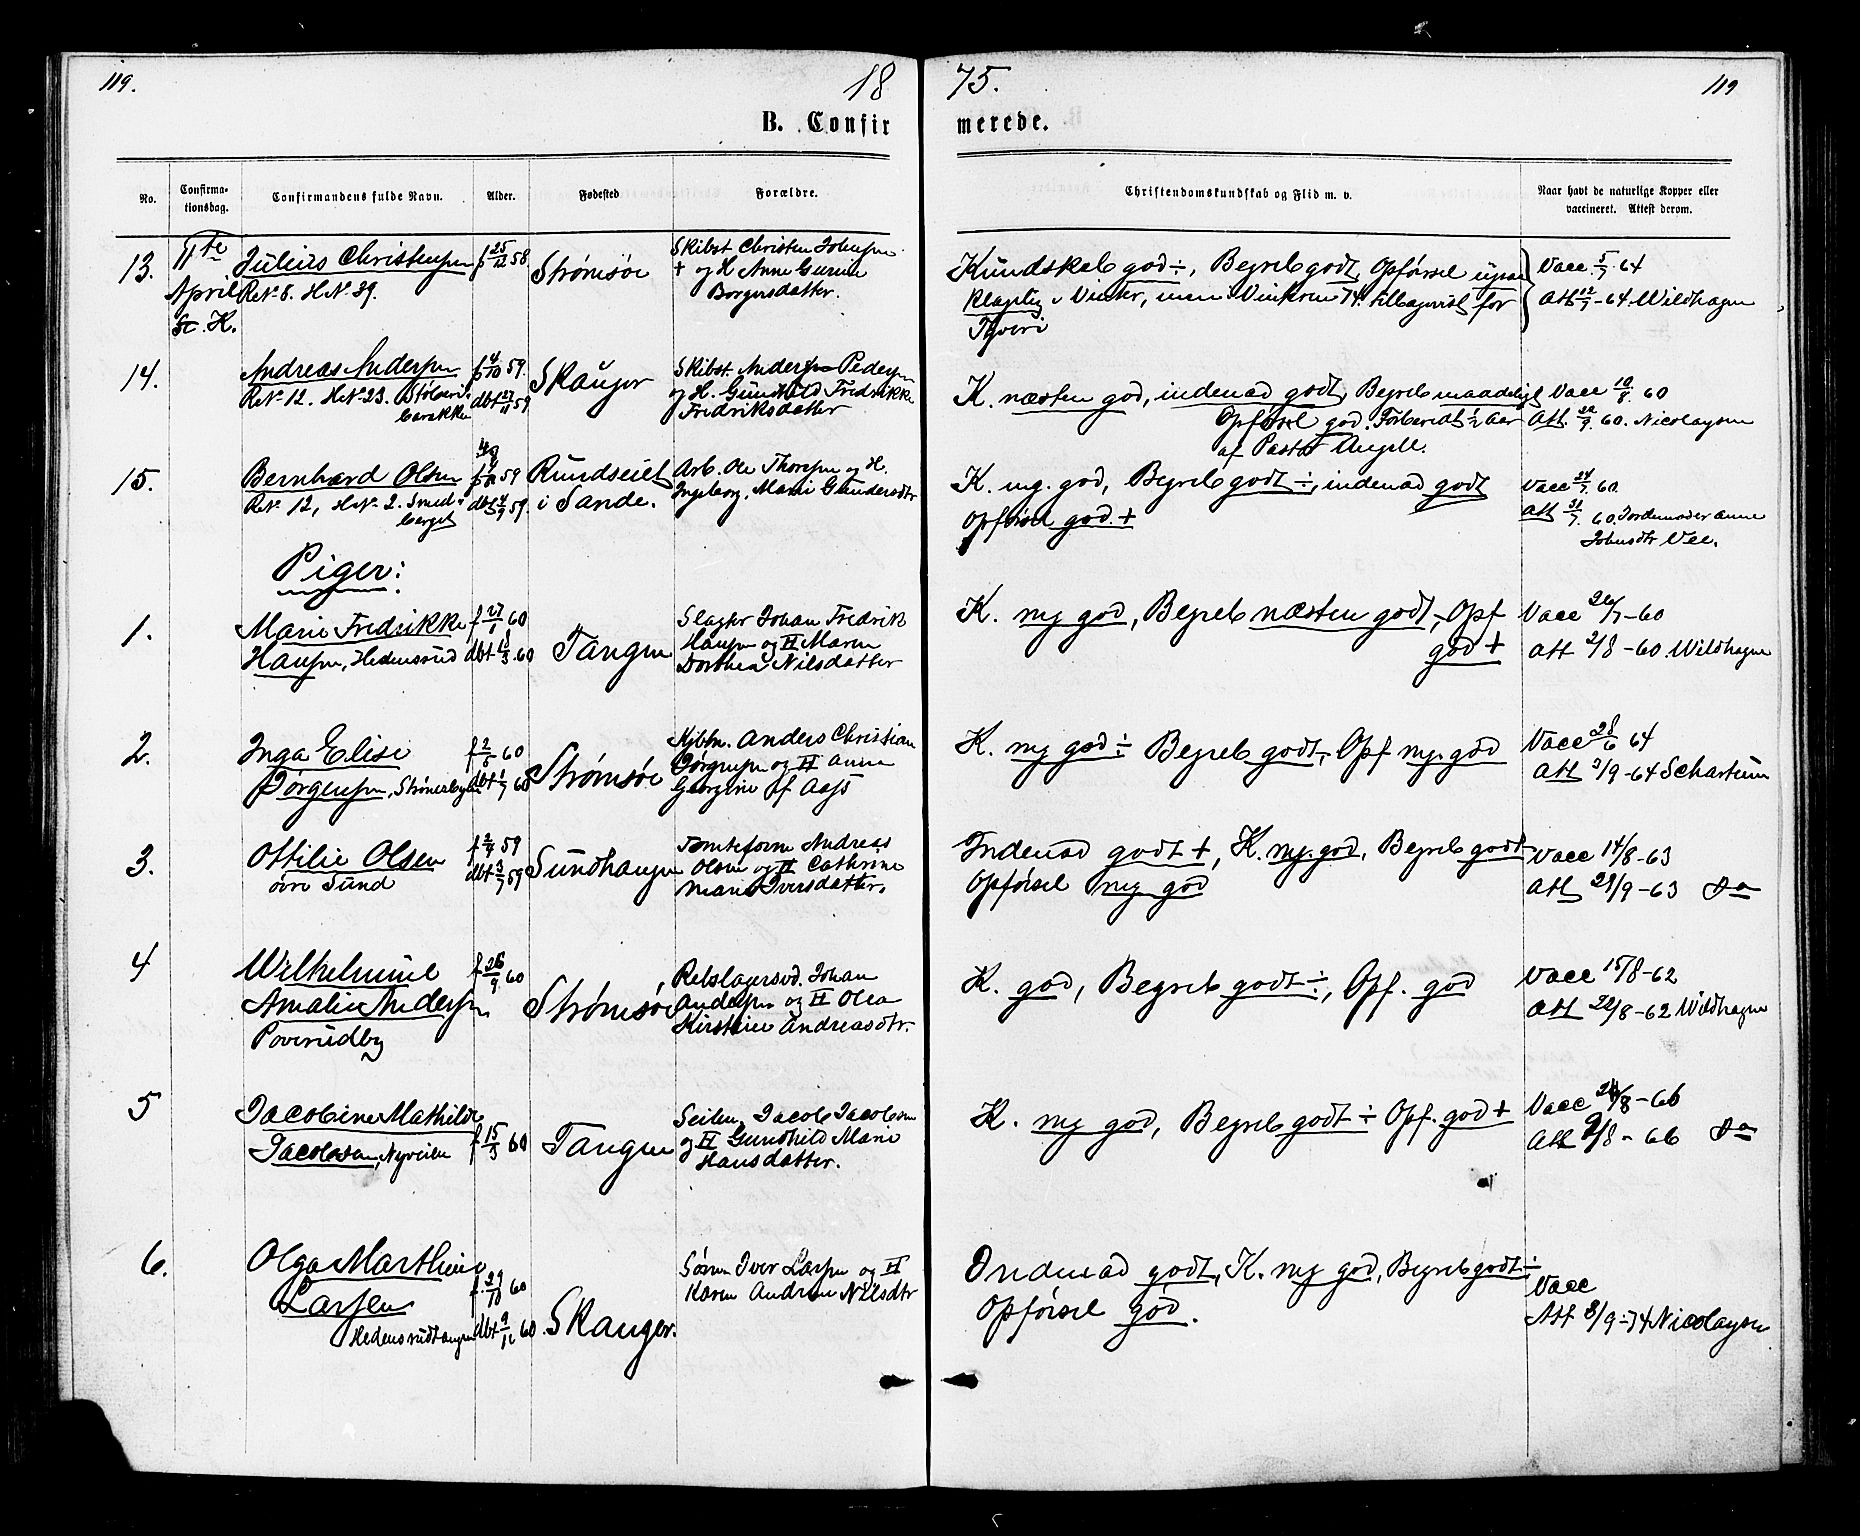 119.
18
75.
119
B. Confir
merede.
No.
Confirma-
tionsdag.
Confirmandens fulde Navn.
Alder.
Fødested
Forældre.
Christendomskundskab og Flid m. v.
Naar havt de naturlige Kopper eller
vaccineret. Attest derom.
13.
11te
April
St. H.
Julius Christensen
R.No 8. H.No 39.
f 25/12 58
Strømsøe
Skibst Christen Johnsen
+ og H Anne Gurine
Borgersdatter.
Kundskab god ÷, Begreb godt, Opførsel upaa
klagelig i Vinter, men i Vinteren 74. tilbagevist for
Tyveri
Vacc. 5/7 64
Att 12/7 - 64 Wildhagen
14.
Andreas Andersen
R.No 12. H.No 23. Støberi
barakke
f 4/10 59.
dbt 27/11 59
Skauger
Skibst. Anders Pedersen
og H. Gunhild Fredrikke
Fredriksdatter
K. næsten god, indenad godt, Begreb maadeligt
Opførsel god. Forberedt ½ Aar
af Pastor Angell.
Vacc 10/8 60
Att. 22/9 60. Nicolaysen
15.
Bernhard Olsen
R.No 12, H.No 2. Smed i
berget
59
dbt 4/9 59.
Rundseiet
i Sande.
Arb. Ole Thorsen og H.
Ingeborg Marie Gundersdtr
K. mg. god, Begreb godt ÷, indenad godt
Opførsel god +
Vacc 24/7 60
Att 31/7 60. Jordemoder Anne
Johnsdtr Vee.
Piger:
1.
Marie Fredrikke
Hansen, Hedensrud
f 27/1 60
dbt 18/3 60
Tangen
Slagter Johan Fredrik
Hansen og H Maren
Dorthea Nilsdatter
K. mg god, Begreb næsten godt, Opf
god +
Vacc 26/7 - 60
Att 2/8 - 60 Wildhagen
2.
Inga Elise
Jørgensen, Strømsbyen
f 2/6 60
dbt 1/7 60
Strømsøe
Kjbm. Anders Christian
Jørgensen og H Anne
Georgine f Aass
K. mg god ÷ Begreb godt, Opf mg. god
Vacc 28/6 64
Att 2/9 - 64 Schartum
3.
Ottilie Olsen
øvre Sund
f 2/4 59
dbt 3/7 59
Sundhaugen
Tomteform Andreas
Olsen og H Cathrine
Marie Iversdatter.
Indenad godt +, K. mg. god, Begreb godt
Opførsel mg god
Vacc 14/8 - 63
Att 21/9 - 63 Do
4
Wilhelmine
Amalie Andersen
Poverudby
f 26/9 60
Strømsøe
Rebslagersvd. Johan
Andersen og H Olea
Kirstine Andreasdtr.
K. god, Begreb godt ÷, Opf. god
Vacc 15/8 - 62
Att 22/8 - 62 Wildhagen
5
Jacobine Mathilde
Jacobsen, Nyveien
f 15/3 60
Tangen
Seilm Jacob Jacobsen
og H Gunhild Marie
Hansdatter.
K. mg god, Begreb godt ÷ Opf. god +
Vacc 24/8 - 66
Att 9/8 - 66 Do
6.
Olga Marthine
Larsen
Hedensrudtangen
f. 29/10 60
dbt 9/12 60.
Skauger.
Sømn Iver Larsen og H
Karen Andrine Nilsdtr
Indenad godt, K. mg god, Begreb godt ÷
Opførsel god.
Vacc
Att 8/9 - 74 Nicolaysen